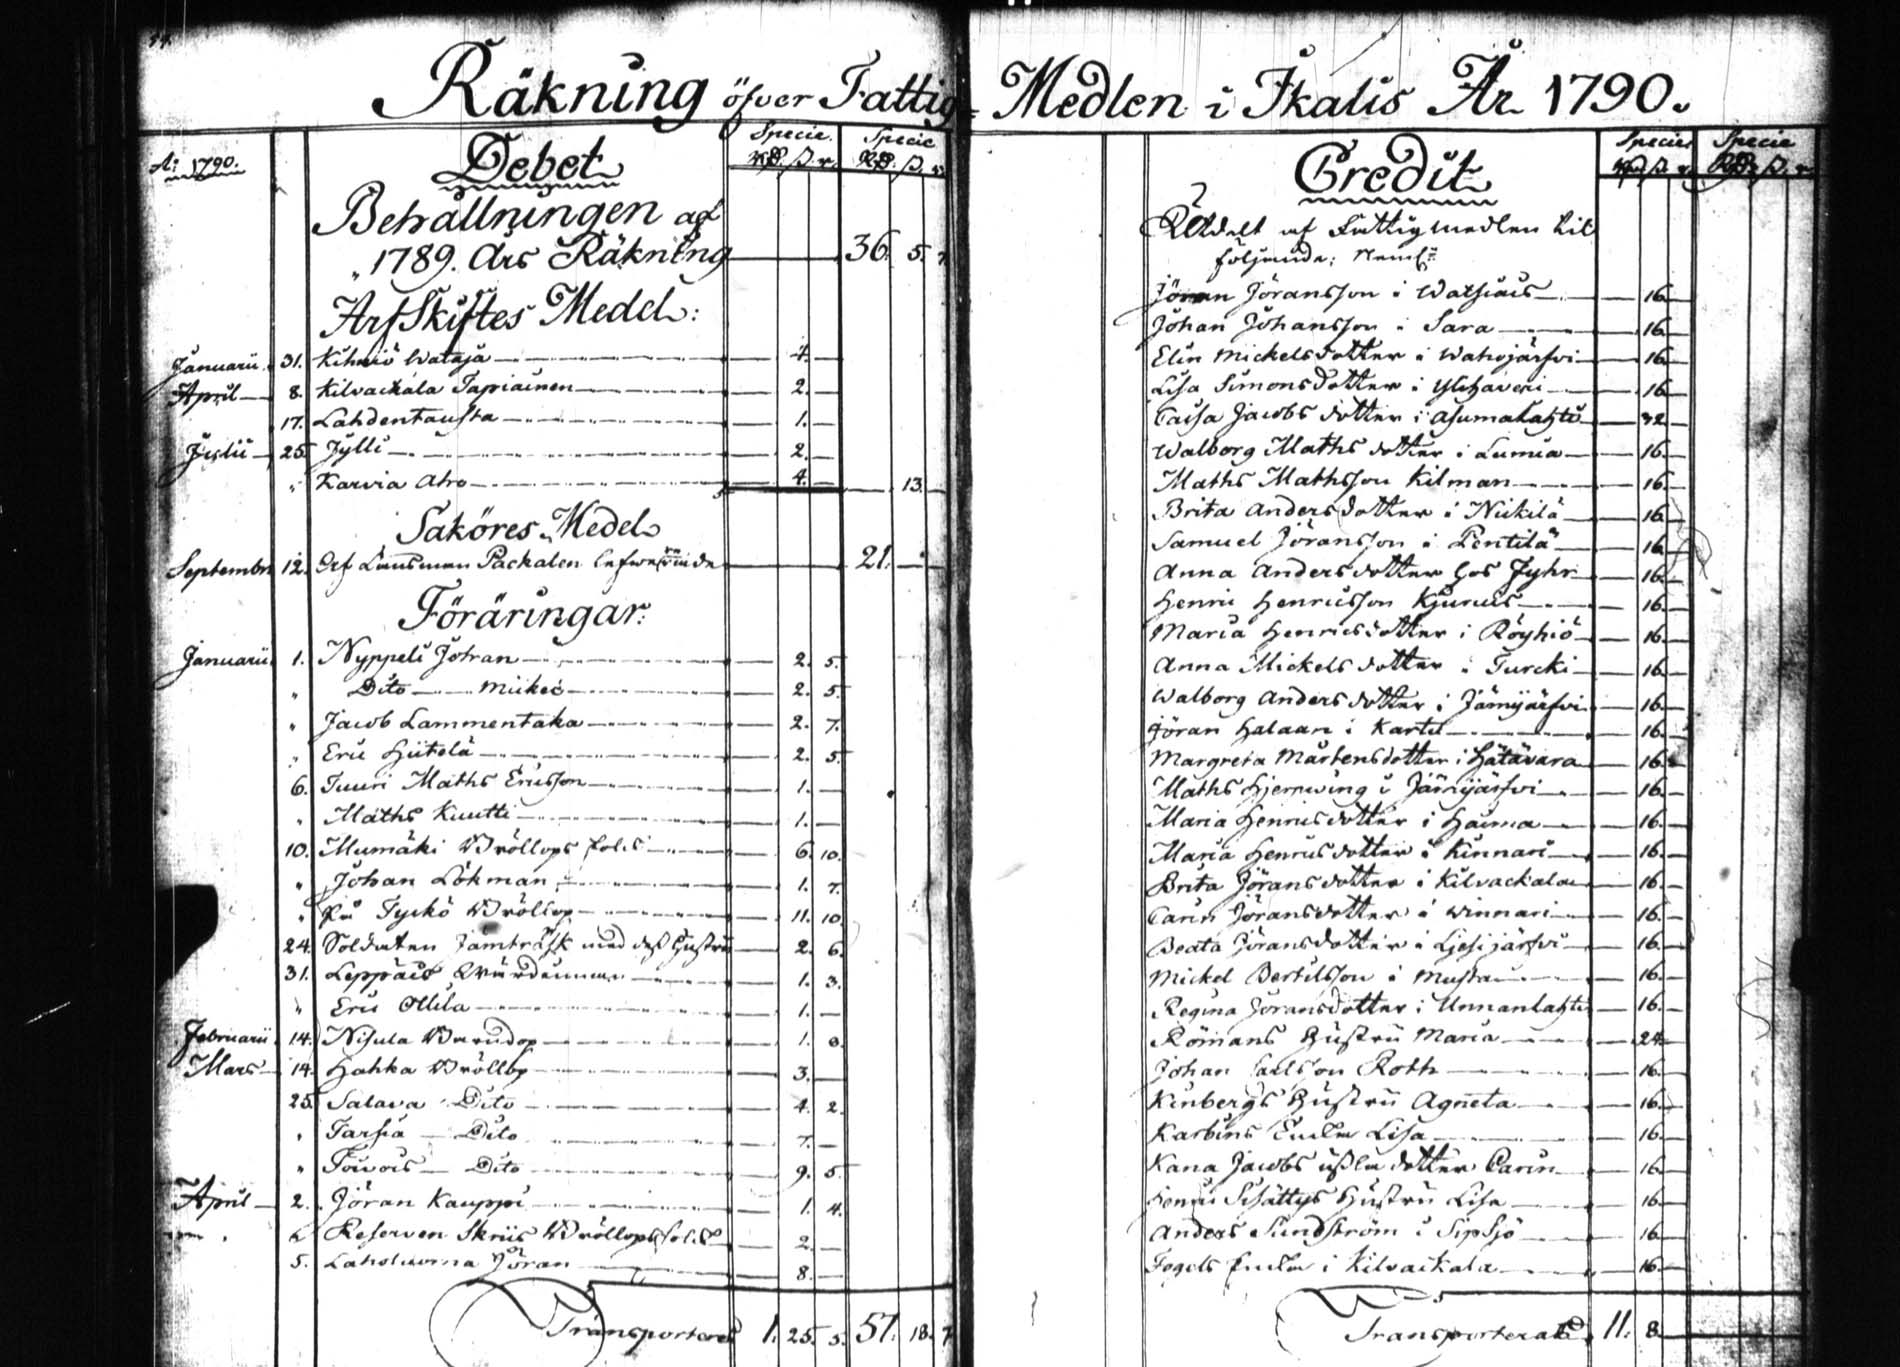 Räkning öfver Fattig=Medlen i Ikalis År 1790.
Debet
Specie Specie
A:o 1790.
Behållningen af
1789. Års Räkning 36. 5. 7.
ArfSkiftes Medel:
Januarii 31. Kihniö Wataja 4.
April 8. Kilvackala Tapiainen 2.
17. Lahdentausta 1.
Julii 25. Jylli 2.
" Karvia Aho 4. 13.
Saköres Medel
Septembr 12. Af Länsman Packalen 21.
Föräringar:
Januarii 1. Nyppeli Johan 2. 5.
" Dito Mickel 2. 5.
" Jacob Lammentaka 2. 7.
" Eric Hiitelä 2. 5.
6. Juuri Maths Ericsson 1.
" Maths Kuutti 1.
10. Mumäki Bröllops folk 6. 10.
" Johan Lökman 1. 7.
" På Tyckö Bröllop 11. 10.
24. Soldaten Jämtråsk med dess Hustru 2. 6.
31. Leppäis 1. 3.
" Eric Ollila 1.
Februarii 14. Nisula 1.
Mars 14. Hahka Bröllop 3.
25. Salava Dito 4. 2.
" Tarsia Dito 7.
" Toivois Dito 9. 5.
April 2. Jöran Kauppi 1. 4.
Reserven Skriis Bröllops folk 2.
5. Laholuoma Jöran 8.
Transporteres 1. 25. 5. 57. 18. 7.
Credit
Specie Specie
Utdelt af Fattigmedlen til
följande; Neml:
Jöran Jöransson i Watsiais 16.
Johan Johansson i Sara 16.
Elin Mickelsdotter i Wahojärfvi 16.
Lisa Simonsdotter i 16.
Caisa Jacobsdotter i Asumalahti 32
Walborg Mathsdotter i Lumia 16.
Maths Mathsson Kilman 16.
Brita Andersdotter i Nickilä 16.
Samuel Jöransson i Pentilä 16.
Anna Andersdotter hos Fyhr 16.
Henric Henricsson 16.
Maria Henricsdotter i Röyhiö 16.
Anna Mickelsdotter i Turcki 16.
Walborg Andersdotter i Jämijärfvi 16.
Jöran Halaan i Kartu 16.
Margreta Mårtensdotter i Hätävara 16.
Maths Hjerpving i Jämijärfvi 16.
Maria Henricsdotter i Hauma 16.
Maria Henricsdotter i Kinnari 16.
Brita Jöransdotter i Kilvackala 16.
Carin Jöransdotter i Winnari 16.
Beata Jöransdotter i Liesijärfvi 16.
Mickel Bertilsson i Musta 16.
Regina Jöransdotter i Unnanlahti 16.
Römans Hustru Maria 24.
Johan Carlsson Roth 16.
Kinbergs Hustru Agneta 16.
Karbins Enka Lisa 16.
Kana Jacobs dotter Carin 16.
Henric Hustru Lisa 16.
Anders Sundström i Sipsjö 16.
Fogels Enka i Kilvackala 16.
Transporteras 11. 8.